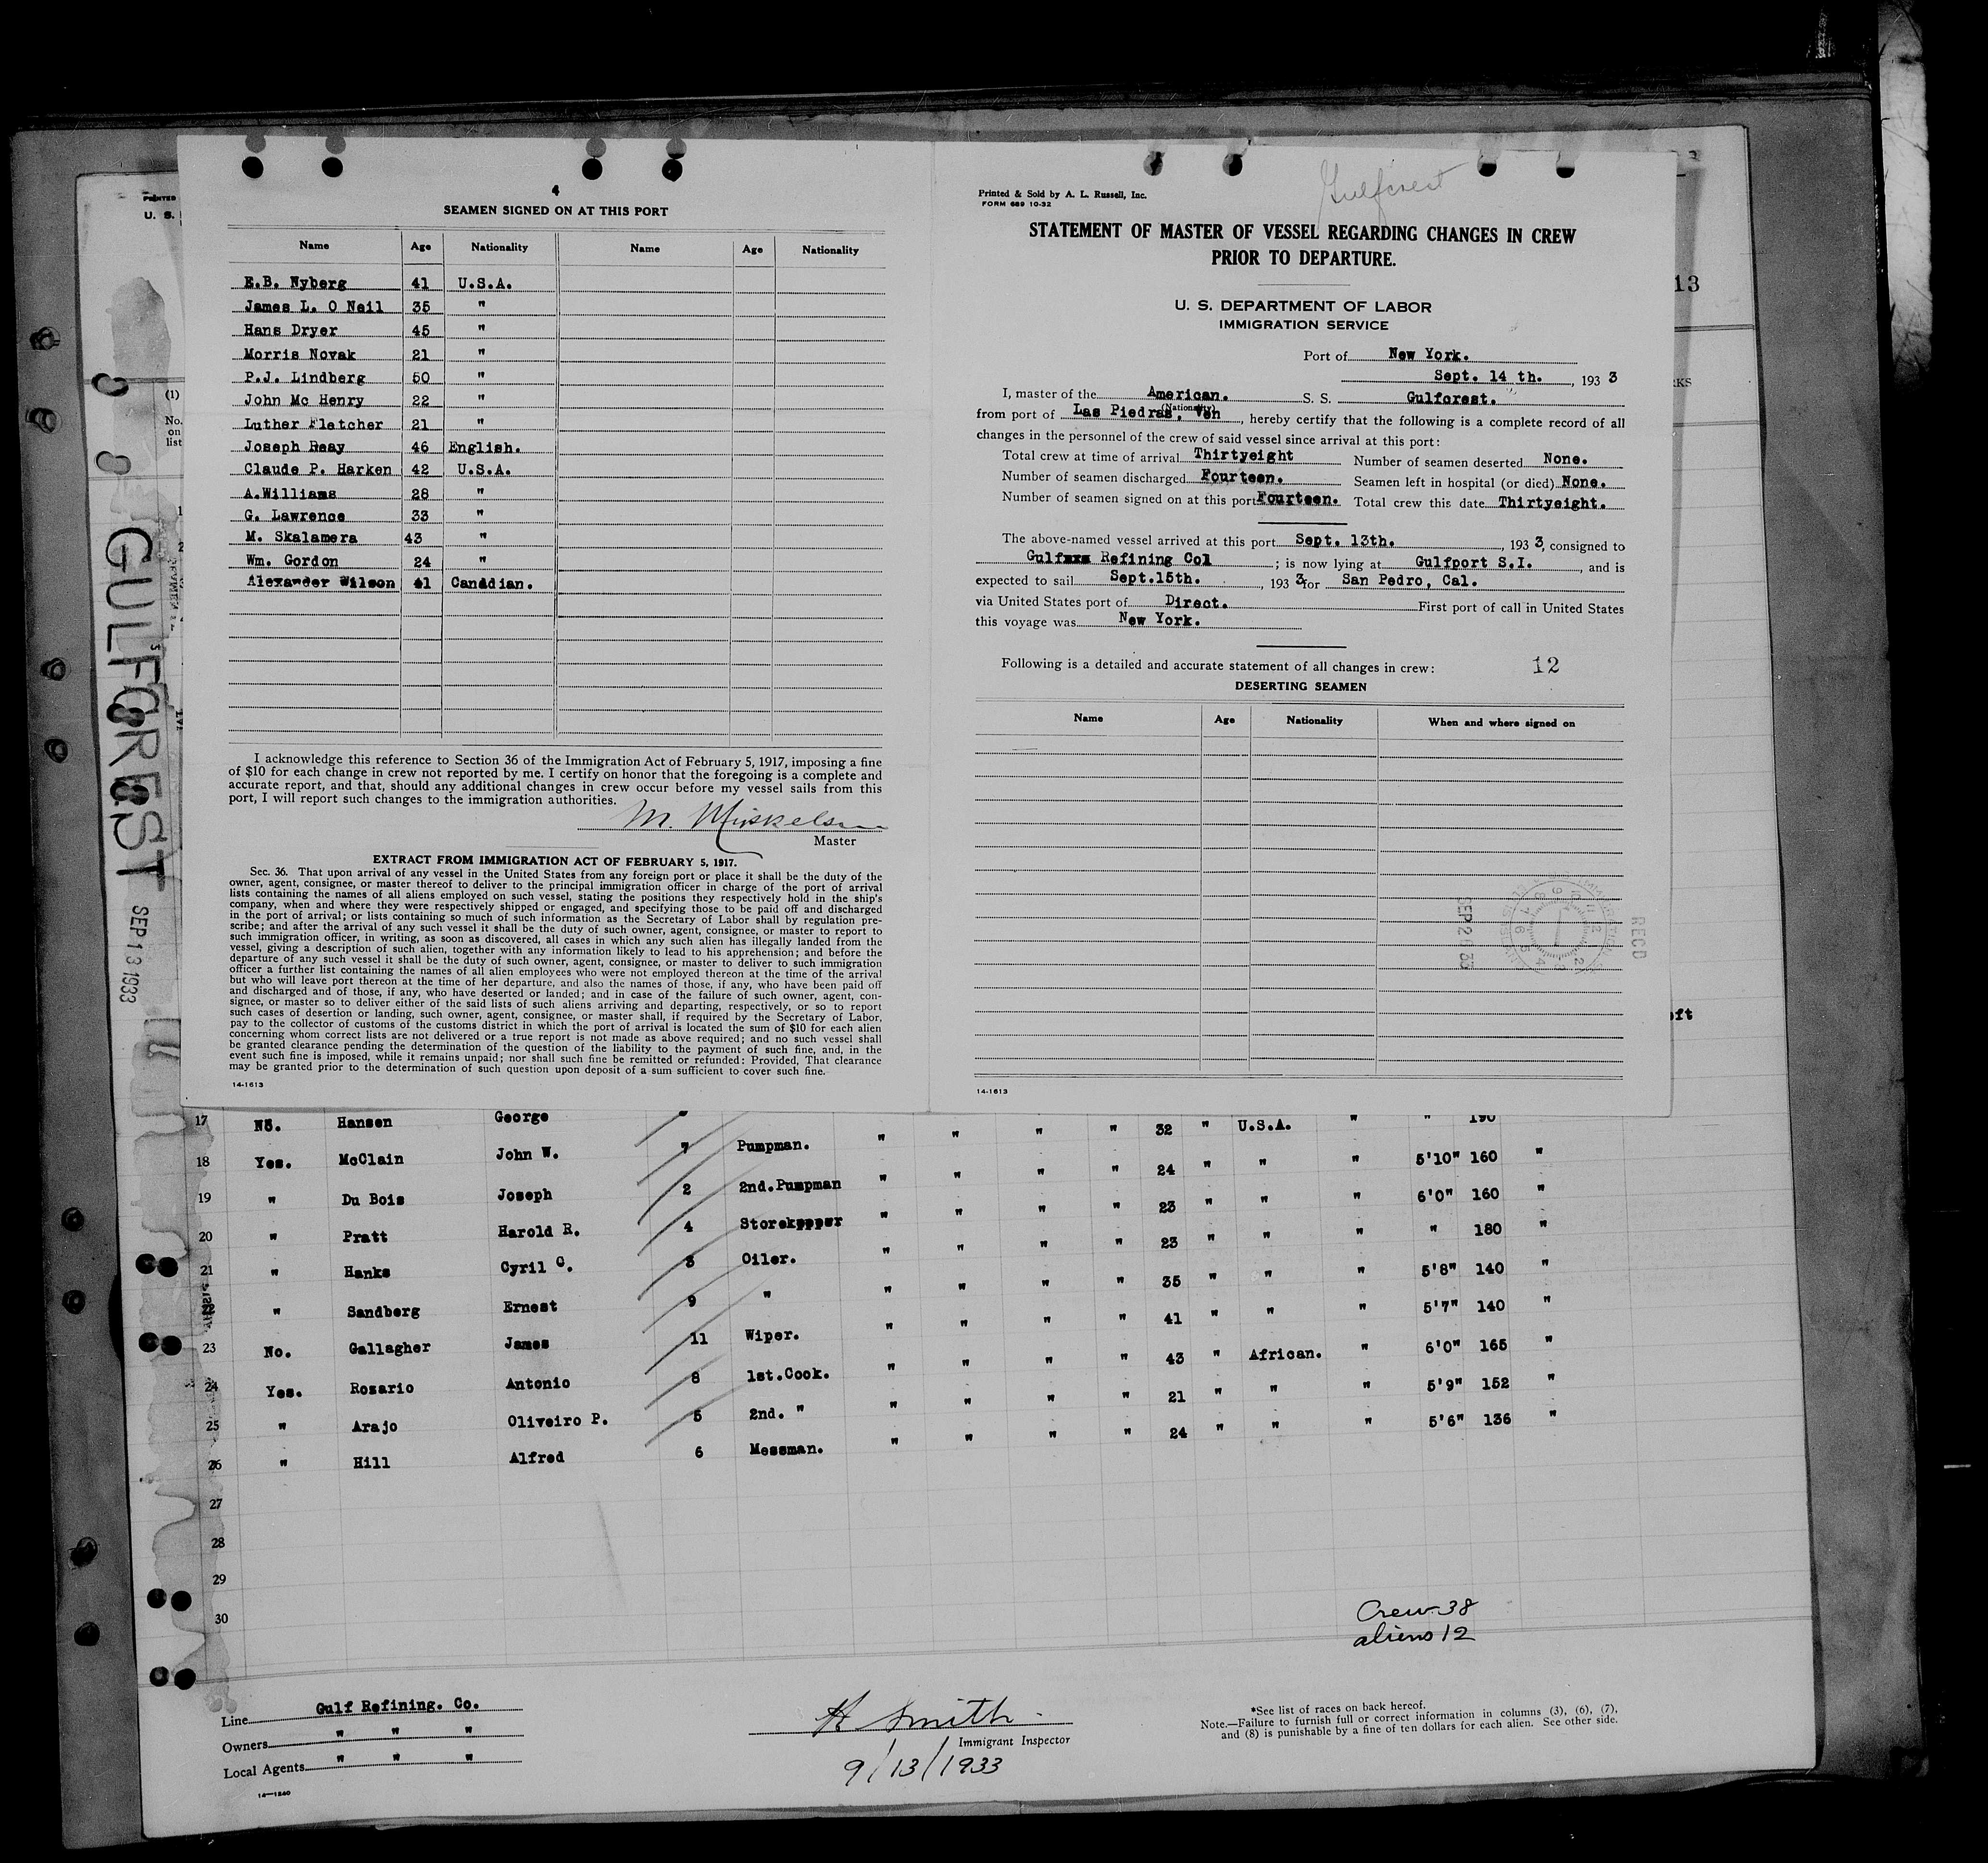 4
SEAMEN SIGNED ON AT THIS PORT
Name Age Nationality Name Age Nationality
E.B. Nyberg 41 U.S.A.
James L. O Neil 35 "
Hans Dryer 45 "
Morris Novak 21 "
P.J. Lindberg 50 "
John Mc Henry 22 "
Luther Fletcher 21 "
Joseph Reay 46 English.
Claude P. Harken 42 U.S.A.
A.Williams 28 "
G. Lawrence 33 "
M. Skalamera 43 "
Wm. Gordon 24 "
Alexander Wilson 41 Canadian.
I acknowledge this reference to Section 36 of the Immigration Act of February 5, 1917, imposing a fine
of $10 for each change in crew not reported by me. I certify on honor that the foregoing is a complete and
accurate report, and that, should any additional changes in crew occur before my vessel sails from this
port, I will report such changes to the immigration authorities.
M. Mirskelsen
Master
EXTRACT FROM IMMIGRATION ACT OF FEBRUARY 5, 1917.
Sec. 36. That upon arrival of any vessel in the United States from any foreign port or place it shall be the duty of the
owner, agent, consignee, or master thereof to deliver to the principal immigration officer in charge of the port of arrival
lists containing the names of all aliens employed on such vessel, stating the positions they respectively hold in the ship's
company, when and where they were respectively shipped or engaged, and specifying those to be paid off and discharged
in the port of arrival; or lists containing so much of such information as the Secretary of Labor shall by regulation pre-
scribe; and after the arrival of any such vessel it shall be the duty of such owner, agent, consignee, or master to report to
such immigration officer, in writing, as soon as discovered, all cases in which any such alien has illegally landed from the
vessel, giving a description of such alien, together with any information likely to lead to his apprehension; and before the
departure of any such vessel it shall be the duty of such owner, agent, consignee, or master to deliver to such immigration
officer a further list containing the names of all alien employees who were not employed thereon at the time of the arrival
but who will leave port thereon at the time of her departure, and also the names of those, if any, who have been paid off
and discharged and of those, if any, who have deserted or landed; and in case of the failure of such owner, agent, con-
signee, or master so to deliver either of the said lists of such aliens arriving and departing, respectively, or so to report
such cases of desertion or landing, such owner, agent, consignee, or master shall, if required by the Secretary of Labor,
pay to the collector of customs of the customs district in which the port of arrival is located the sum of $10 for each alien
concerning whom correct lists are not delivered or a true report is not made as above required; and no such vessel shall
be granted clearance pending the determination of the question of the liability to the payment of such fine, and, in the
event such fine is imposed, while it remains unpaid; nor shall such fine be remitted or refunded: Provided, That clearance
may be granted prior to the determination of such question upon deposit of a sum sufficient to cover such fine.
14-1613
Gulfcrest
Printed & Sold by A. L. Russell, Inc.
FORM 689 10-32
STATEMENT OF MASTER OF VESSEL REGARDING CHANGES IN CREW
PRIOR TO DEPARTURE.
U. S. DEPARTMENT OF LABOR
IMMIGRATION SERVICE
Port of New York.
Sept. 14 th. , 193 3
I, master of the American. S. S. Gulfcrest.
(Nationality)
from port of Las Piedras, Ven , hereby certify that the following is a complete record of all
changes in the personnel of the crew of said vessel since arrival at this port:
Total crew at time of arrival Thirtyeight Number of seamen deserted None.
Number of seamen discharged Fourteen. Seamen left in hospital (or died) None.
Number of seamen signed on at this port Fourteen. Total crew this date Thirtyeight.
The above-named vessel arrived at this port Sept. 13th. , 193 3, consigned to
Gulfxxx Refining Col ; is now lying at Gulfport S.I. , and is
expected to sail Sept.15th. , 193 3 for San Pedro, Cal.
via United States port of Direct. First port of call in United States
this voyage was New York.
Following is a detailed and accurate statement of all changes in crew: 12
DESERTING SEAMEN
Name Age Nationality When and where signed on
RECD
SEP 2 6 33
14-1613
PRINTED
U. S.
13
(1)
No.
on
list
RKS
GULFCREST
SEP 13 1933
eft
17 No. Hansen George " " " " 32 " U.S.A. " " 190
18 Yes. McClain John W. 7 Pumpman. " " " " 24 " " " 5'10" 160 "
19 " Du Bois Joseph 2 2nd.Pumpman " " " " 23 " " " 6'0" 160 "
20 " Pratt Harold R. 4 Storekppper " " " " 23 " " " " 180 "
21 " Hanks Cyril G. 3 Oiler. " " " " 35 " " " 5'8" 140 "
22 " Sandberg Ernest 9 " " " " " 41 " " " 5'7" 140 "
23 No. Gallagher James 11 Wiper. " " " " 43 " African. " 6'0" 165 "
24 Yes. Rosario Antonio 8 1st.Cook. " " " " 21 " " " 5'9" 152 "
25 " Arajo Oliveiro P. 5 2nd. " " " " " 24 " " " 5'6" 136 "
26 " Hill Alfred 6 Messman.
27
28
29
30
Crew 38
aliens 12
Line Gulf Refining. Co.
Owners " " "
Local Agents " " "
14-1240
H Smith
Immigrant Inspector
9/13/1933
*See list of races on back hereof.
Note.—Failure to furnish full or correct information in columns (3), (6), (7),
and (8) is punishable by a fine of ten dollars for each alien. See other side.